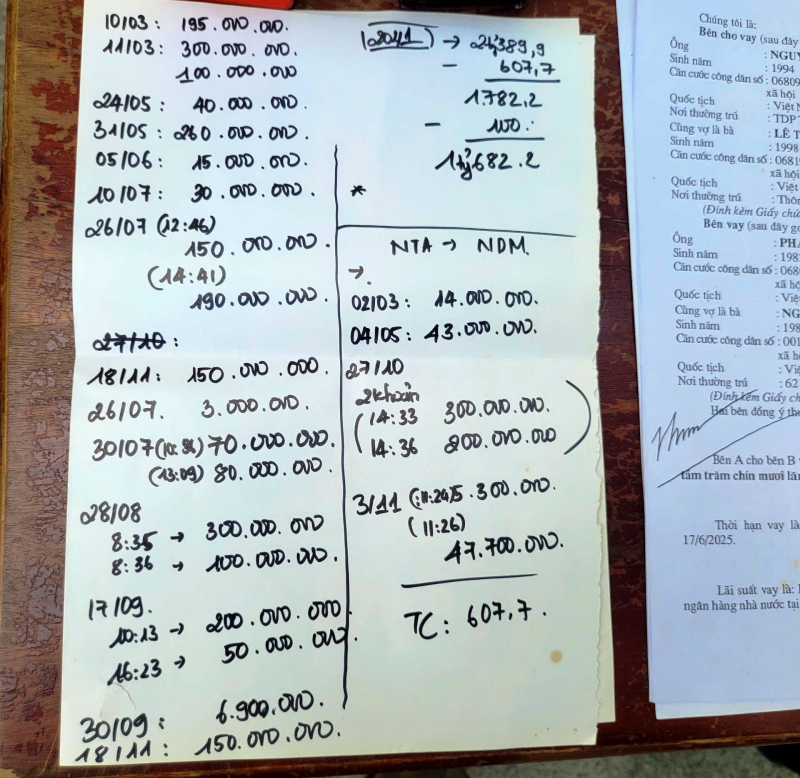 10/03 : 195.000.000.
11/03 : 300.000.000.
100.000.000
24/05 : 40.000.000.
31/05 : 260.000.000.
05/06 : 15.000.000.
10/07 : 30.000.000.
26/07 (12:46)
150.000.000.
(14:41)
190.000.000.
27/10 :
18/11 : 150.000.000.
26/07. 3.000.000.
30/07 (10:36) 70.000.000.
(13:09) 80.000.000.
28/08
8:35 → 300.000.000
8:36 → 100.000.000.
17/09.
10:13 → 200.000.000.
16:23 → 50.000.000.
30/09 : 6.900.000.
18/11 : 150.000.000.
→ 2tỷ389,9
- 607,7
1.782,2
- 100.
1tỷ682.2
*
NTA → NDM.
→.
02/03 : 14.000.000.
04/05 : 43.000.000.
27/10
2 khoản
(14:33 300.000.000.
14:36 200.000.000)
3/11 300.000.
(11:26)
47.700.000.
TC : 607,7.
Chúng tôi là:
Bên cho vay (sau đây
Ông : NGUY
Sinh năm : 1994
Căn cước công dân số : 06809
xã hội
Quốc tịch : Việt N
Nơi thường trú : TDP
Cùng vợ là bà : LÊ T
Sinh năm : 1998
Căn cước công dân số : 0681
xã hội
Quốc tịch : Việt
Nơi thường trú : Thôn
(Đính kèm Giấy chứ
Bên vay (sau đây gọ
Ông : PHA
Sinh năm : 198
Căn cước công dân số : 068
xã hộ
Quốc tịch : Việ
Cùng vợ là bà : NG
Sinh năm : 198
Căn cước công dân số : 001
xã hộ
Quốc tịch : Việ
Nơi thường trú : 62
(Đính kèm Giấy ch
Hai bên đồng ý the
Bên A cho bên B v
tám trăm chín mươi lăm
Thời hạn vay là
17/6/2025.
Lãi suất vay là:
ngân hàng nhà nước tại